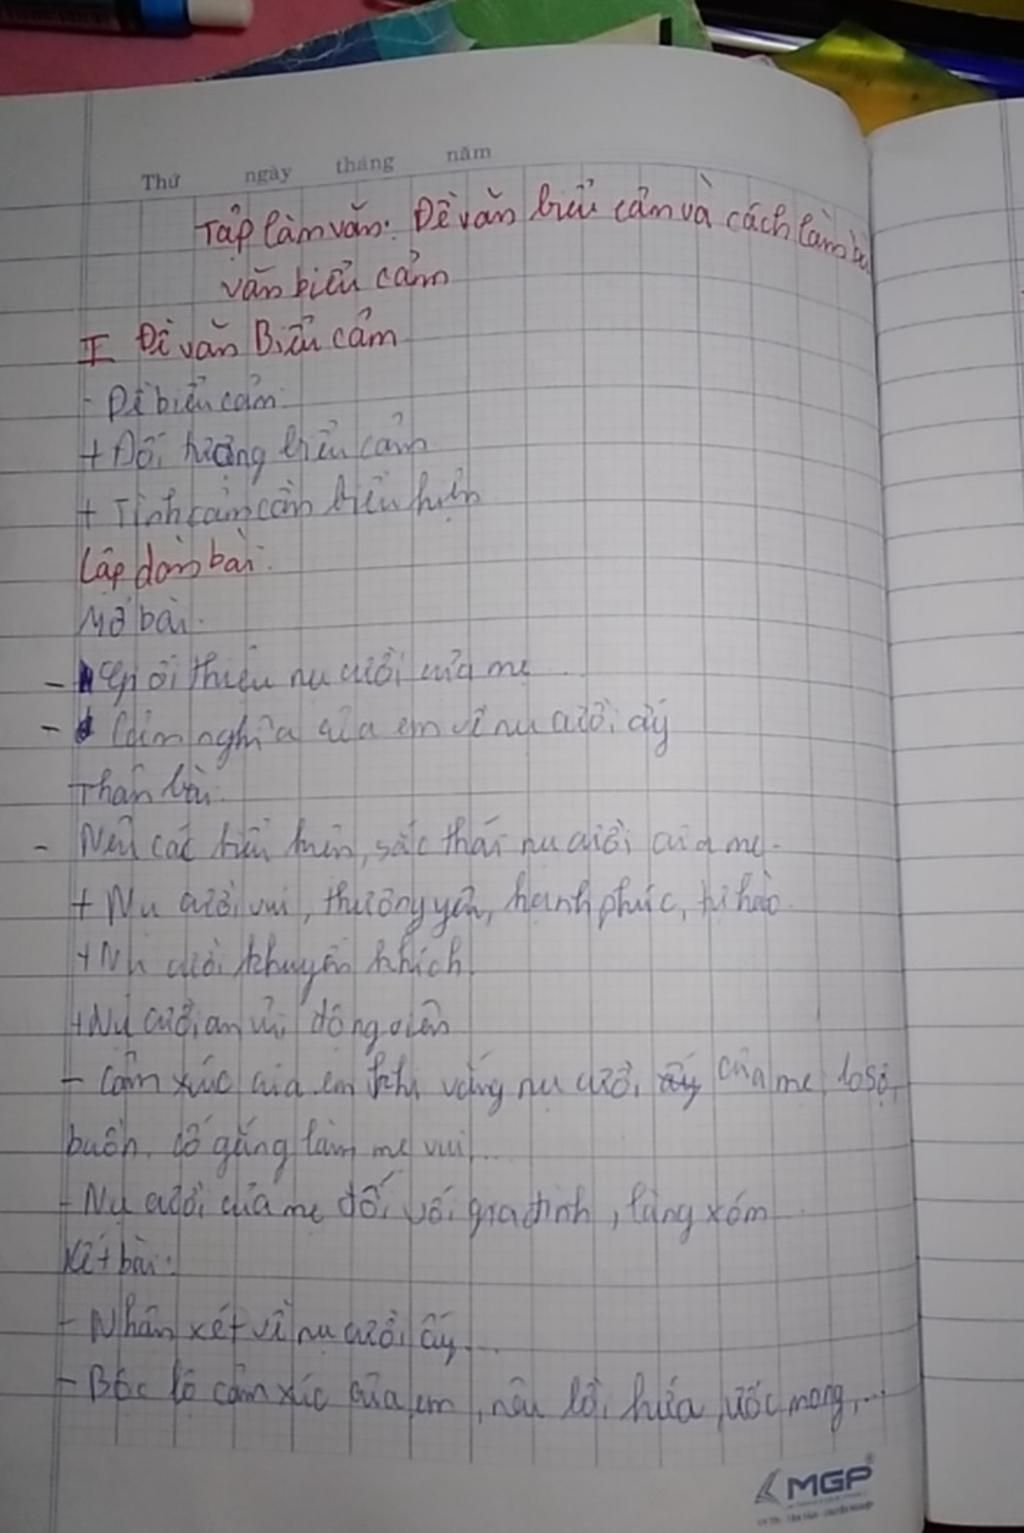 Thứ ngày tháng năm
Tập làm văn: Đề văn biểu cảm và cách làm bài
văn biểu cảm
I Đề văn Biểu cảm
- Đề biểu cảm:
+ Đối tượng biểu cảm
+ Tình cảm cần biểu hiện
Lập dàn bài:
Mở bài:
- Giới thiệu nụ cười của mẹ
- Cảm nghĩ của em về nụ cười ấy
Thân bài:
- Nêu các biểu hiện, sắc thái nụ cười của mẹ.
+ Nụ cười vui, thương yêu, hạnh phúc, tự hào
+ Nụ cười khuyến khích
+ Nụ cười an ủi, động viên
- Cảm xúc của em khi vắng nụ cười ấy của mẹ: lo sợ,
buồn, cố gắng làm mẹ vui...
- Nụ cười của mẹ đối với gia đình, làng xóm
Kết bài:
- Nhận xét về nụ cười ấy...
- Bộc lộ cảm xúc của em, nêu lời hứa, ước mong,...
MGP